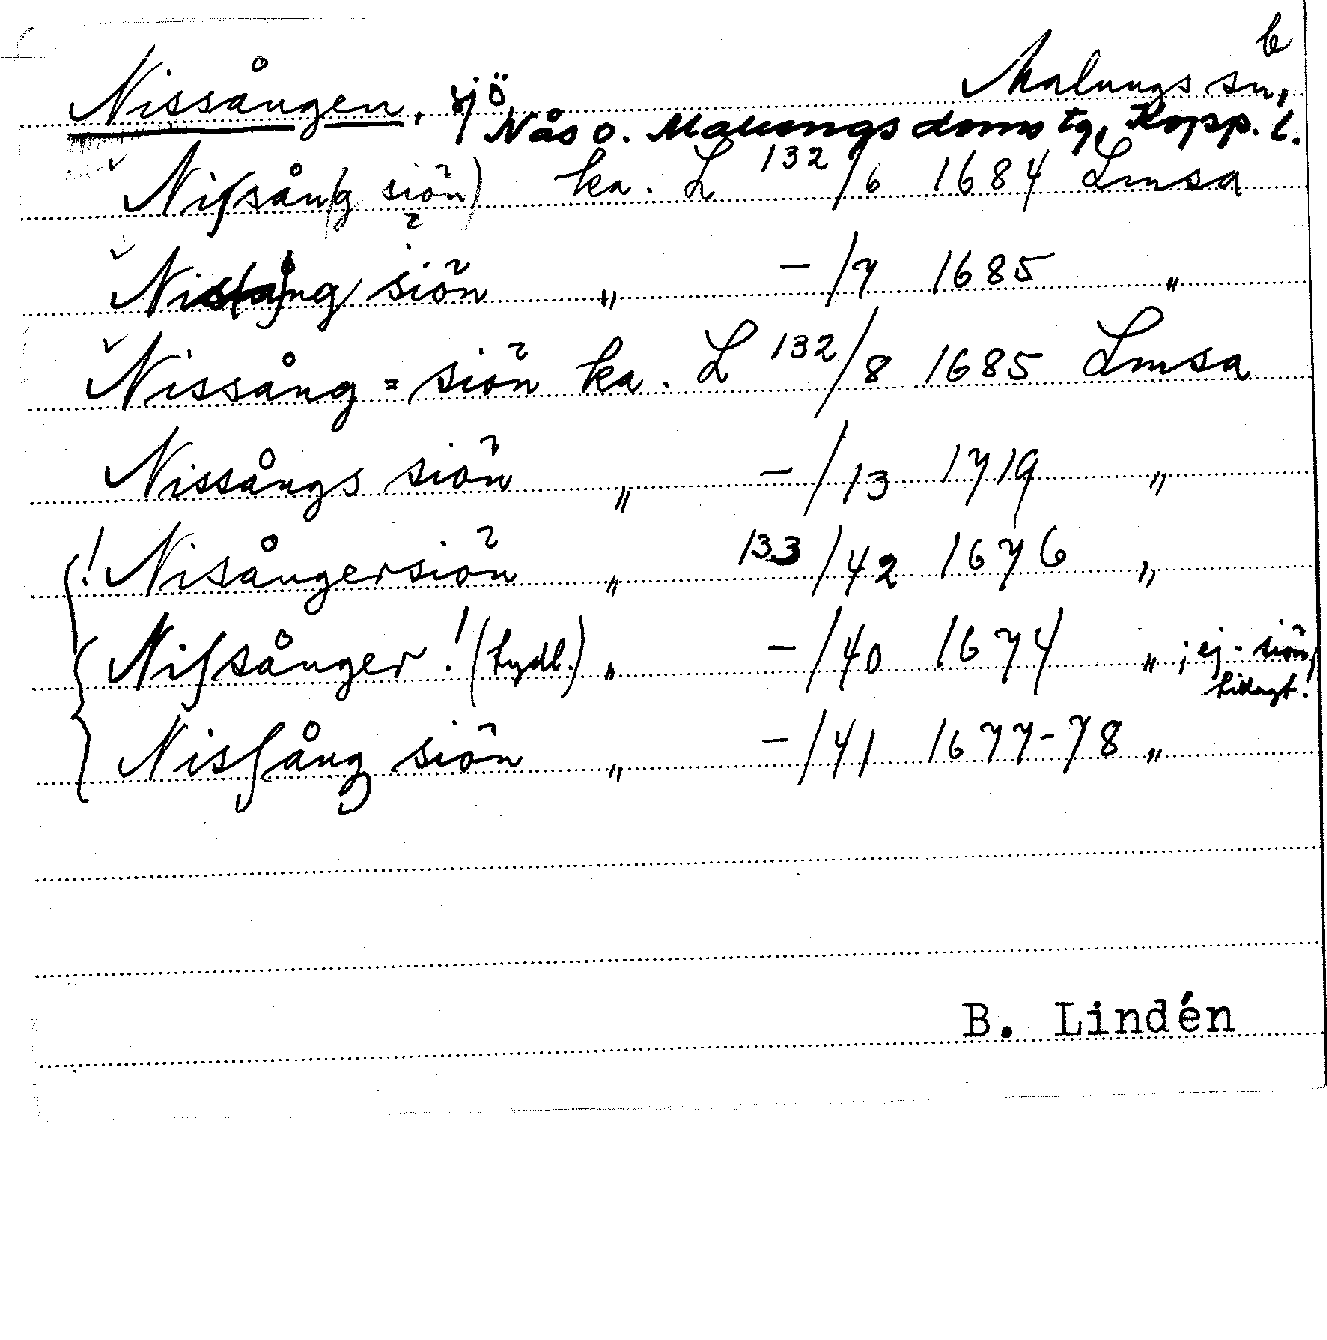 b
Nissången, sjö, Malungs sn,
Nås o. Malungs doms tg, Kopp. l.
Nissån(g siön) ka. L 132/6 1684 Lmsa
Nissång siön " -/7 1685 "
Nissång = siön ka. L 132/8 1685 Lmsa
Nissångs siön " -/13 1719 "
! Nisångersiön " 133/42 1676 "
Nissånger! (tydl.) " -/40 1674 " ; ej - siön,
tillagt!
Nissång siön " -/41 1677-78 "
B. Lindén